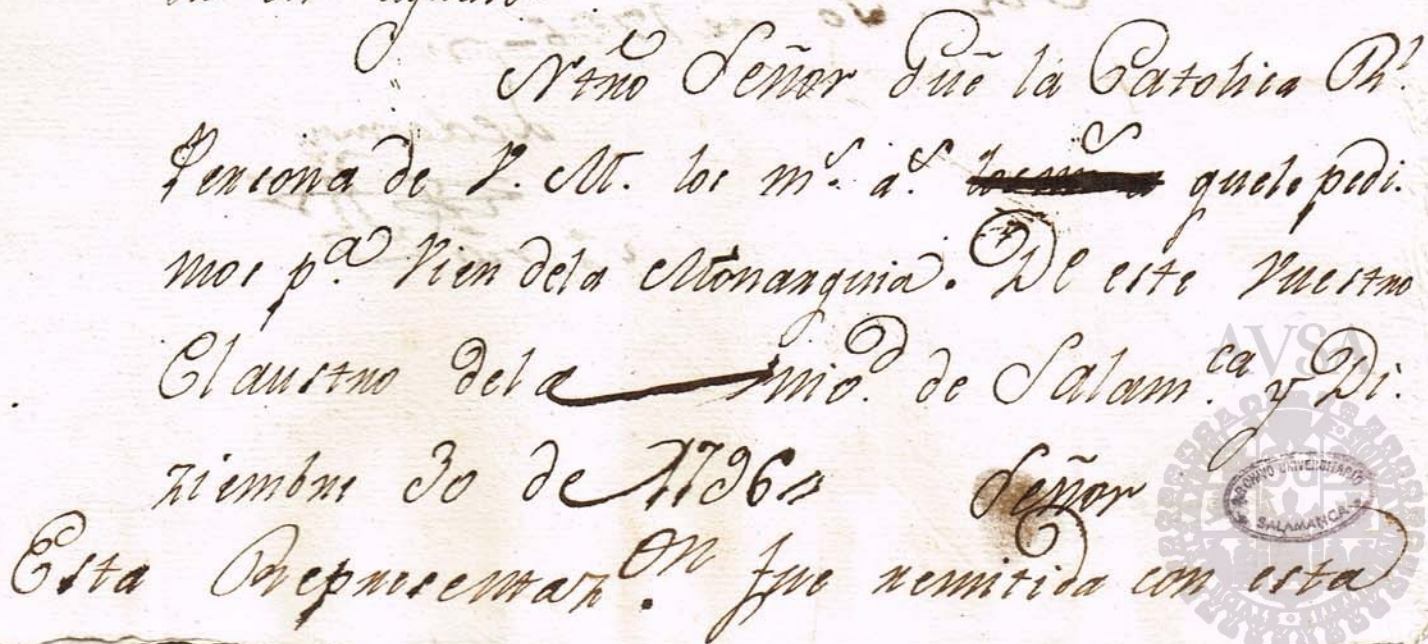 Ntrô Señor Guê la Catolica Rˡ.
Persona de V. M. los mˢ. aˢ. que le pedi.
mos pᵃ. Vien dela Monarquia. De este Vuestro
Claustro dela Uniᵒᵈ. de Salam.ᶜᵃ y Di.
ziembre 30 de 1796 Señor
Esta Representaz.ᵒⁿ fue remitida con esta
AVSA
ARCHIVO UNIVERSITARIO
SALAMANCA